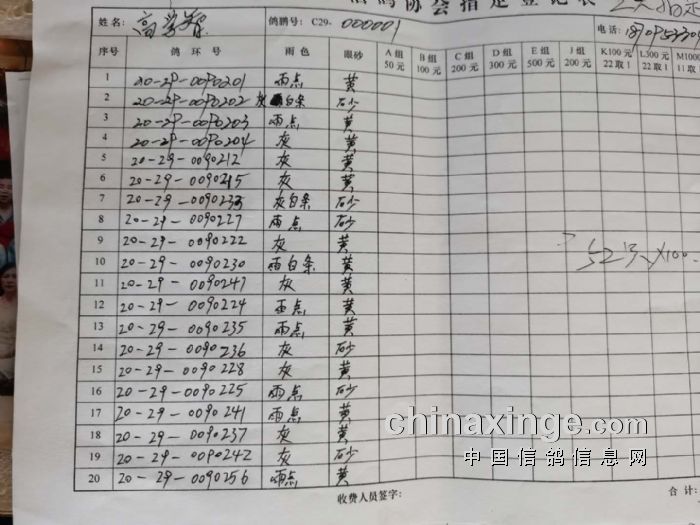 信鸽协会指定登记表
姓名: 鸽鹏号: C29- 000001 电话:
序号 鸽环号 雨色 眼砂 A组 50元 B组 100元 C组 200元 D组 300元 E组 500元 J组 200元 K100元 22取1 L300元 22取1 M1000 11取
1 20-29-0090201 雨点 黄
2 20-29-0090202 灰白条 砂
3 20-29-0090203 雨点 黄
4 20-29-0090204 灰 黄
5 20-29-0090212 灰 黄
6 20-29-0090215 灰 黄
7 20-29-0090233 灰白条 砂
8 20-29-0090227 雨点 砂
9 20-29-0090222 灰 黄
10 20-29-0090230 雨白条 黄
11 20-29-0090247 灰 黄
12 20-29-0090224 雨点 黄
13 20-29-0090235 雨点 黄
14 20-29-0090236 灰 砂
15 20-29-0090228 灰 黄
16 20-29-0090225 雨点 砂
17 20-29-0090241 雨点 黄
18 20-29-0090237 灰 黄
19 20-29-0090242 灰 砂
20 20-29-0090256 雨点 黄
收费人员签字: 合计:
chinaxinge.com
中国信鸽信息网